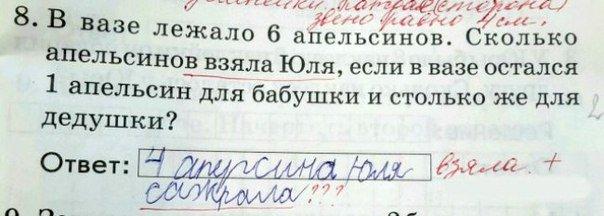 звено равно 4 см.
8. В вазе лежало 6 апельсинов. Сколько
апельсинов взяла Юля, если в вазе остался
1 апельсин для бабушки и столько же для
дедушки?
Ответ: 4 апурсина Юля взяла +
сажрала ???